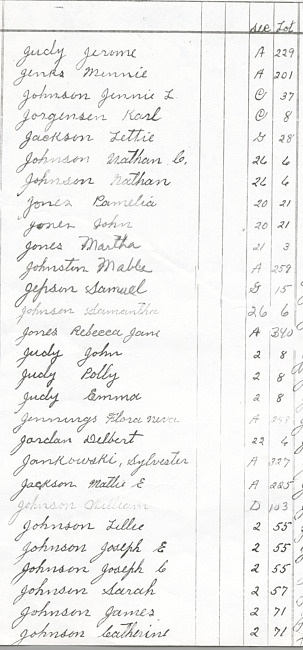 Sec Lot
Judy Jerome A 229
Jenks Minnie A 201
Johnson Jennie L C 37
Jorgensen Karl C 8
Jackson Lettie G 28
Johnson Nathan C. 26 6
Johnson Nathan 26 6
Jones Pamelia 20 21
Jones John 20 21
Jones Martha 21 3
Johnston Mable A 259
Jepson Samuel G 15
Johnson Samantha 26 6
Jones Rebecca Jane A 340
Judy John 2 8
Judy Polly 2 8
Judy Emma 2 8
Jennings Flora Neva A
Jordan Delbert 22 6
Jankowski, Sylvester A 327
Jackson Mattie E A 225
Johnson William D 103
Johnson Lillie 2 55
Johnson Joseph E 2 55
Johnson Joseph C 2 55
Johnson Sarah 2 57
Johnson James 2 71
Johnson Catherine 2 71